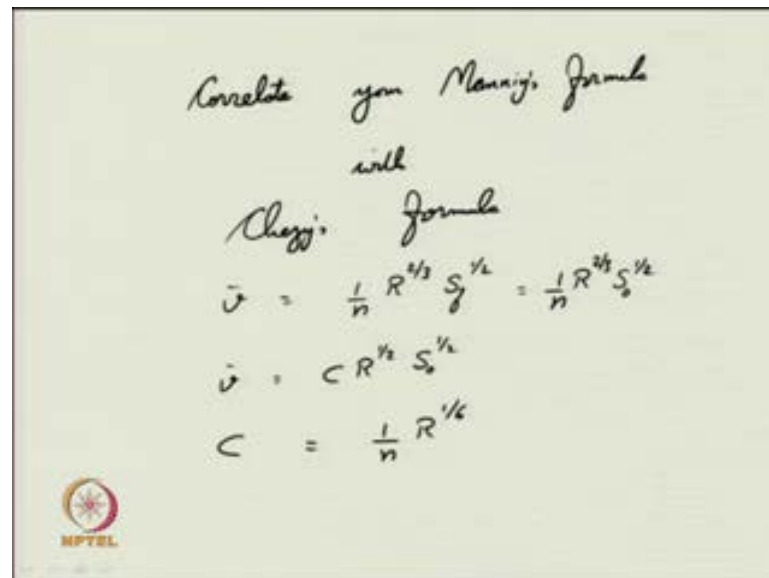 Correlate your Manning's formula
with
Chezy's formula
v̄ = 1/n R^2/3 S_f^1/2 = 1/n R^2/3 S_0^1/2
v̄ = C R^1/2 S_0^1/2
C = 1/n R^1/6
NPTEL